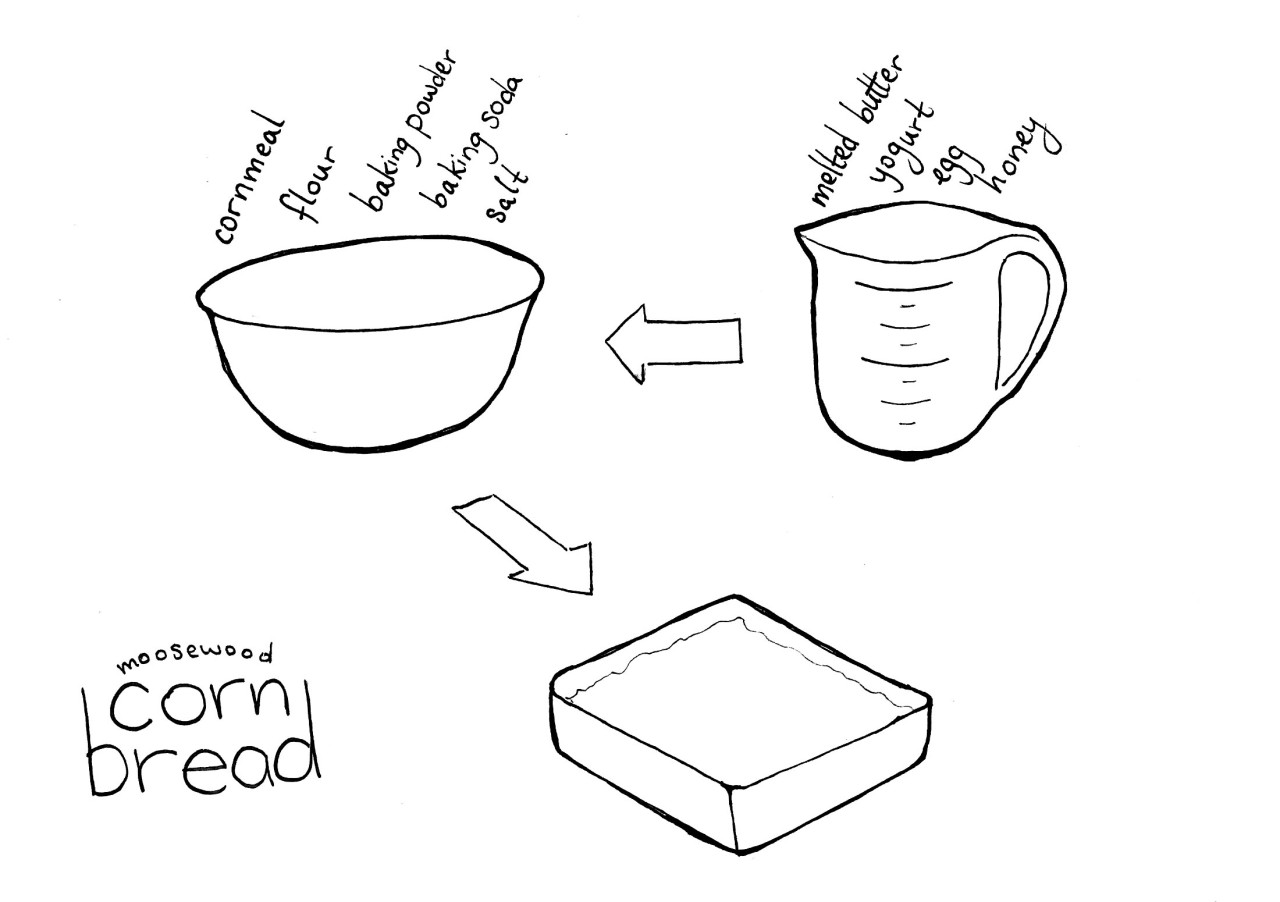 cornmeal
flour
baking powder
baking soda
salt
melted butter
yogurt
egg
honey
moosewood
corn
bread